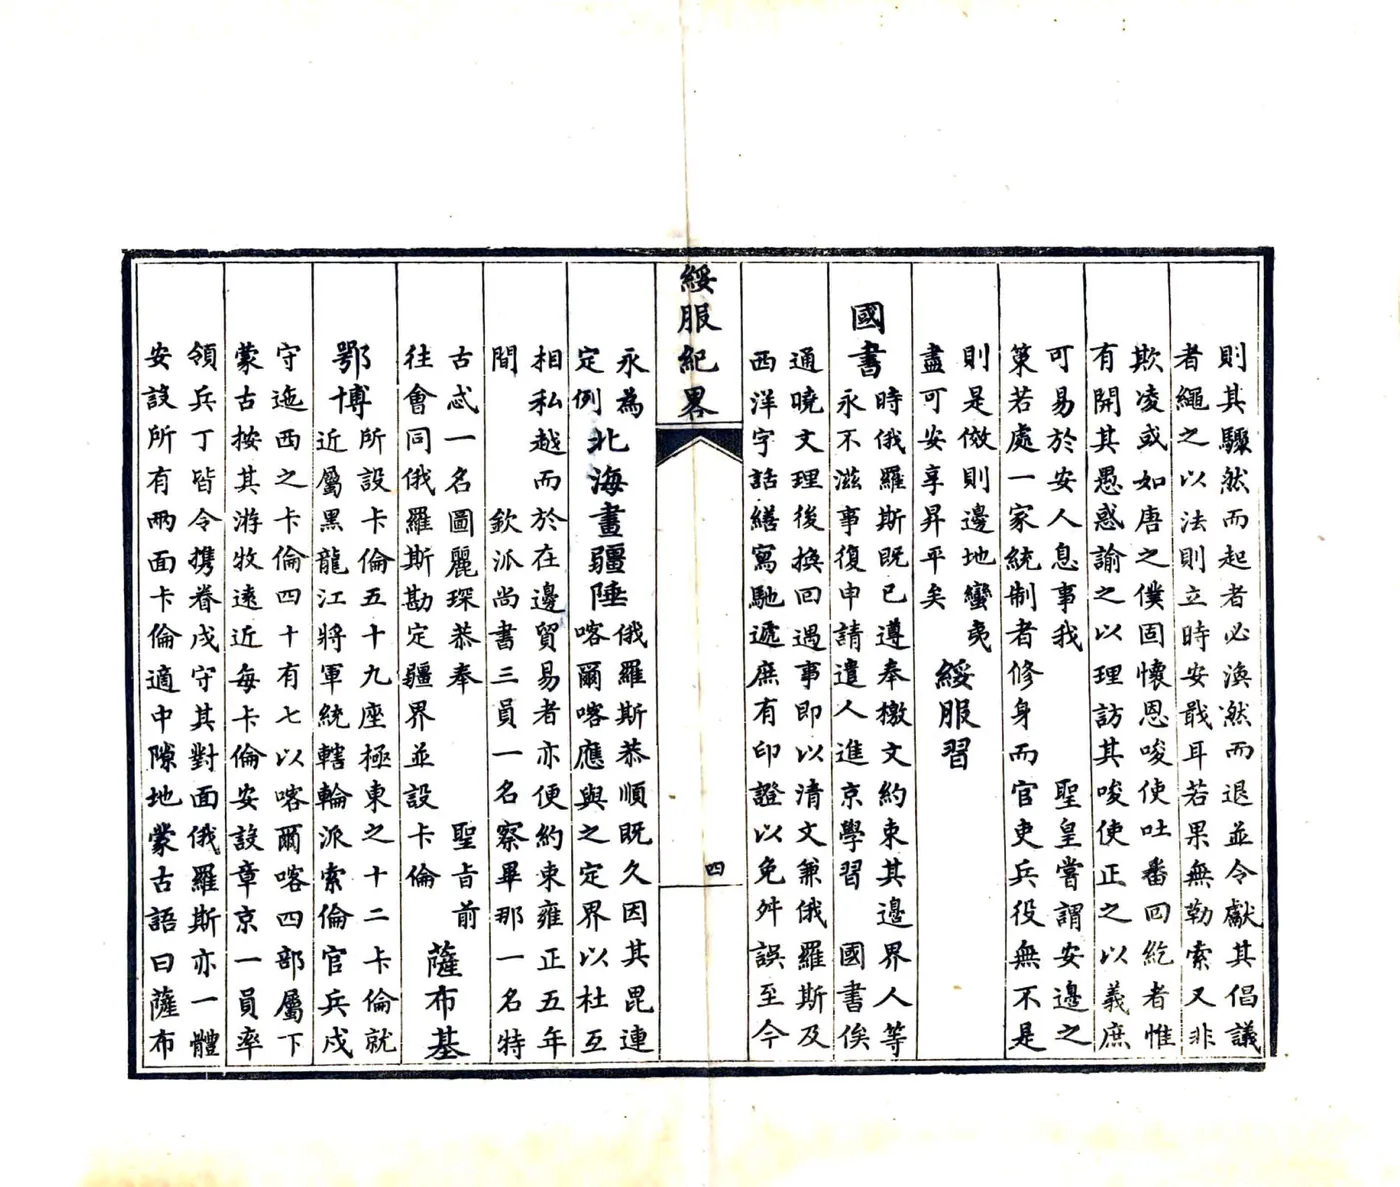 則其驟然而起者必渙然而退並令獻其倡議
者繩之以法則立時安戢耳若果無勒索又非
欺凌或如唐之僕固懷恩唆使吐番回紇者惟
有開其愚惑諭之以理訪其唆使正之以義庶
可易於安人息事我　聖皇嘗謂安邊之
策若處一家統制者修身而官吏兵役無不是
則是傚則邊地蠻夷
盡可安享昇平矣
綏服習
國書
時俄羅斯既已遵奉檄文約束其邊界人等
永不滋事復申請遣人進京學習　國書俟
通曉文理後換回遇事即以清文兼俄羅斯及
西洋字話繕寫馳遞庶有印證以免舛誤至今
綏服紀畧
四
永為
定例
北海畫疆陲
俄羅斯恭順既久因其毘連
喀爾喀應與之定界以杜互
相私越而於在邊貿易者亦便約束雍正五年
間　欽派尚書三員一名察畢那一名特
古忒一名圖麗琛恭奉　聖旨前
往會同俄羅斯勘定疆界並設卡倫
薩布基
鄂博
所設卡倫五十九座極東之十二卡倫就
近屬黑龍江將軍統轄輪派索倫官兵戍
守迤西之卡倫四十有七以喀爾喀四部屬下
蒙古按其游牧遠近每卡倫安設章京一員率
領兵丁皆令攜眷戍守其對面俄羅斯亦一體
安設所有兩面卡倫適中隙地蒙古語曰薩布